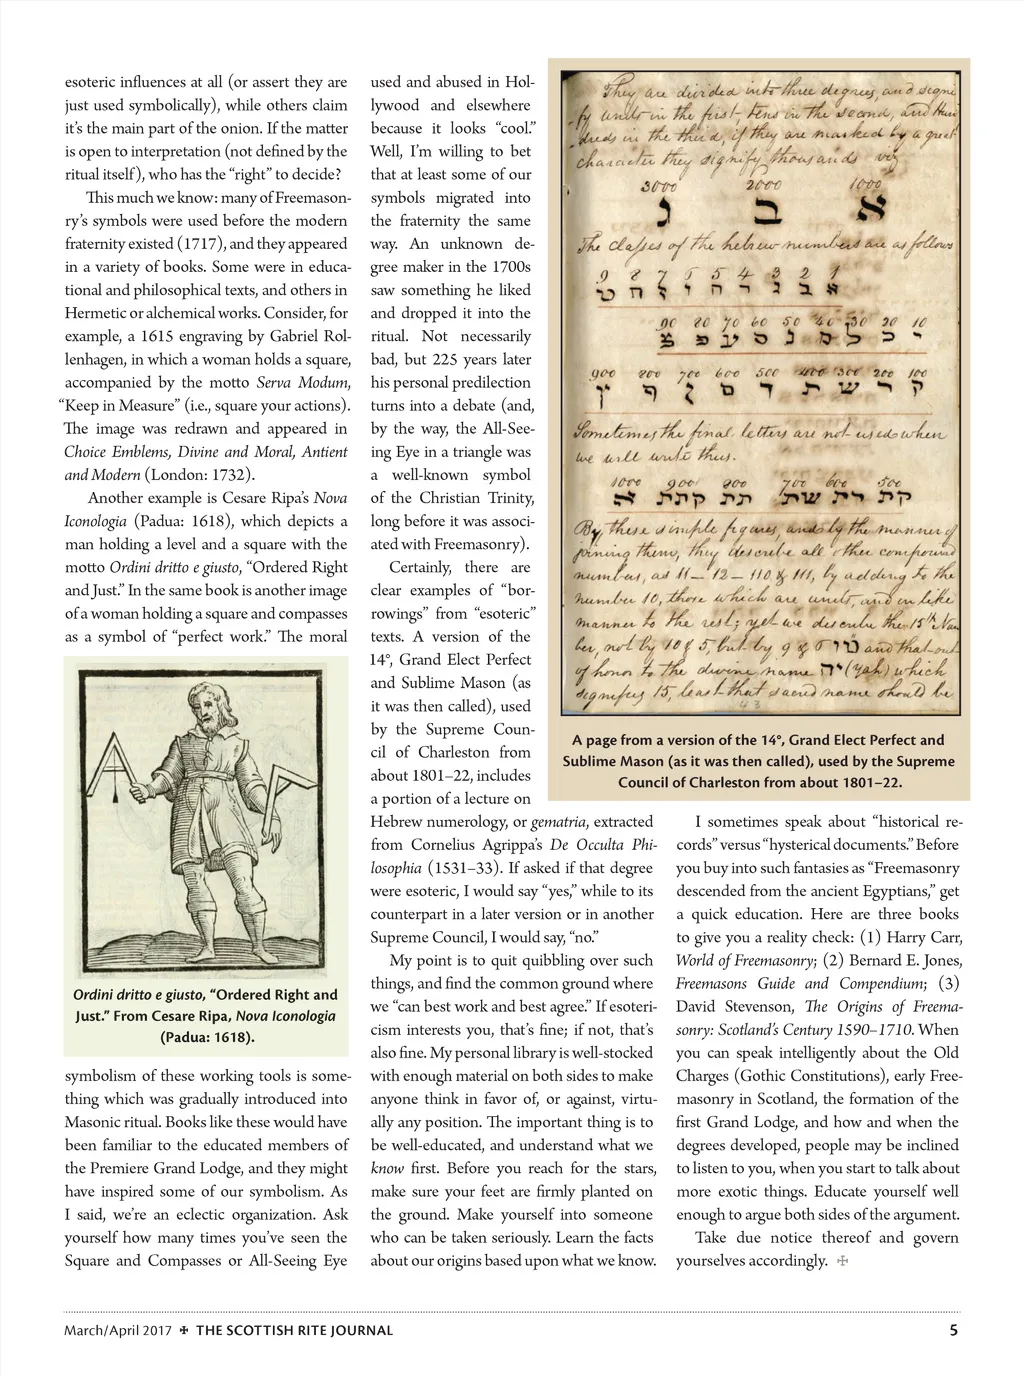 esoteric influences at all (or assert they are
just used symbolically), while others claim
it’s the main part of the onion. If the matter
is open to interpretation (not defined by the
ritual itself), who has the “right” to decide?
This much we know: many of Freemason-
ry’s symbols were used before the modern
fraternity existed (1717), and they appeared
in a variety of books. Some were in educa-
tional and philosophical texts, and others in
Hermetic or alchemical works. Consider, for
example, a 1615 engraving by Gabriel Rol-
lenhagen, in which a woman holds a square,
accompanied by the motto Serva Modum,
“Keep in Measure” (i.e., square your actions).
The image was redrawn and appeared in
Choice Emblems, Divine and Moral, Antient
and Modern (London: 1732).
Another example is Cesare Ripa’s Nova
Iconologia (Padua: 1618), which depicts a
man holding a level and a square with the
motto Ordini dritto e giusto, “Ordered Right
and Just.” In the same book is another image
of a woman holding a square and compasses
as a symbol of “perfect work.” The moral
Ordini dritto e giusto, “Ordered Right and
Just.” From Cesare Ripa, Nova Iconologia
(Padua: 1618).
symbolism of these working tools is some-
thing which was gradually introduced into
Masonic ritual. Books like these would have
been familiar to the educated members of
the Premiere Grand Lodge, and they might
have inspired some of our symbolism. As
I said, we’re an eclectic organization. Ask
yourself how many times you’ve seen the
Square and Compasses or All-Seeing Eye
used and abused in Hol-
lywood and elsewhere
because it looks “cool.”
Well, I’m willing to bet
that at least some of our
symbols migrated into
the fraternity the same
way. An unknown de-
gree maker in the 1700s
saw something he liked
and dropped it into the
ritual. Not necessarily
bad, but 225 years later
his personal predilection
turns into a debate (and,
by the way, the All-See-
ing Eye in a triangle was
a well-known symbol
of the Christian Trinity,
long before it was associ-
ated with Freemasonry).
Certainly, there are
clear examples of “bor-
rowings” from “esoteric”
texts. A version of the
14°, Grand Elect Perfect
and Sublime Mason (as
it was then called), used
by the Supreme Coun-
cil of Charleston from
about 1801–22, includes
a portion of a lecture on
Hebrew numerology, or gematria, extracted
from Cornelius Agrippa’s De Occulta Phi-
losophia (1531–33). If asked if that degree
were esoteric, I would say “yes,” while to its
counterpart in a later version or in another
Supreme Council, I would say, “no.”
My point is to quit quibbling over such
things, and find the common ground where
we “can best work and best agree.” If esoteri-
cism interests you, that’s fine; if not, that’s
also fine. My personal library is well-stocked
with enough material on both sides to make
anyone think in favor of, or against, virtu-
ally any position. The important thing is to
be well-educated, and understand what we
know first. Before you reach for the stars,
make sure your feet are firmly planted on
the ground. Make yourself into someone
who can be taken seriously. Learn the facts
about our origins based upon what we know.
They are divided into three degrees, and signi
fy units in the first, tens in the second, and Hun
dreds in the third, if they are marked by a great
character they signify thousands viz
3000 2000 1000
ג ב א
The classes of the hebrew numbers are as follows
9 8 7 6 5 4 3 2 1
90 80 70 60 50 40 30 20 10
צ פ ע ס נ מ ל כ י
900 800 700 600 500 400 300 200 100
Sometimes the final letters are not used when
we will write thus.
1000 900 800 700 600 500
א קתת תת שת רת קת
By, these simple figures, and by the manner of
joining them, they describe all other compound
number, as 11 – 12 – 110, & 111, by adding to the
number 10, those which are units, and in like
manner to the rest; yet we describe the 15th Num
ber, not by 10 & 5, but by 9 & 6 טו and that out
of honor to the divine name יה (Yah) which
signifys 15, least that sacred name should be
43
A page from a version of the 14°, Grand Elect Perfect and
Sublime Mason (as it was then called), used by the Supreme
Council of Charleston from about 1801–22.
I sometimes speak about “historical re-
cords” versus “hysterical documents.” Before
you buy into such fantasies as “Freemasonry
descended from the ancient Egyptians,” get
a quick education. Here are three books
to give you a reality check: (1) Harry Carr,
World of Freemasonry; (2) Bernard E. Jones,
Freemasons Guide and Compendium; (3)
David Stevenson, The Origins of Freema-
sonry: Scotland’s Century 1590–1710. When
you can speak intelligently about the Old
Charges (Gothic Constitutions), early Free-
masonry in Scotland, the formation of the
first Grand Lodge, and how and when the
degrees developed, people may be inclined
to listen to you, when you start to talk about
more exotic things. Educate yourself well
enough to argue both sides of the argument.
Take due notice thereof and govern
yourselves accordingly. ✠
March/April 2017 ✠ THE SCOTTISH RITE JOURNAL
5